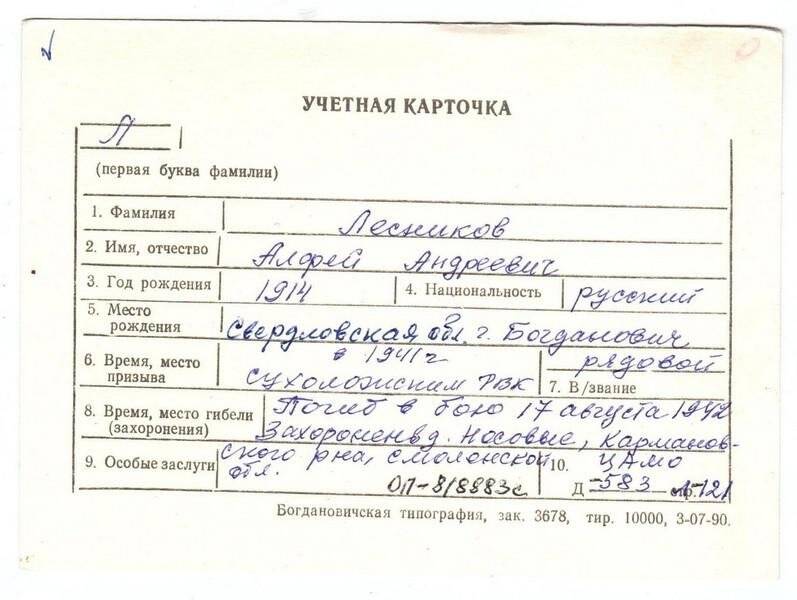 УЧЕТНАЯ КАРТОЧКА
Л
(первая буква фамилии)
1. Фамилия Лесников
2. Имя, отчество Алфей Андреевич
3. Год рождения 1914 4. Национальность русский
5. Место рождения Свердловская обл. г. Богданович
6. Время, место призыва в 1941 г Сухоложским РВК
7. В/звание рядовой
8. Время, место гибели (захоронения) Погиб в бою 17 августа 1942
Захоронен в д. Носовые, Карманов-
ского р-на, Смоленской
обл.
9. Особые заслуги
ОП-8/8883с
10. ЦАМО
Д -583 121
Богдановичская типография, зак. 3678, тир. 10000, 3-07-90.